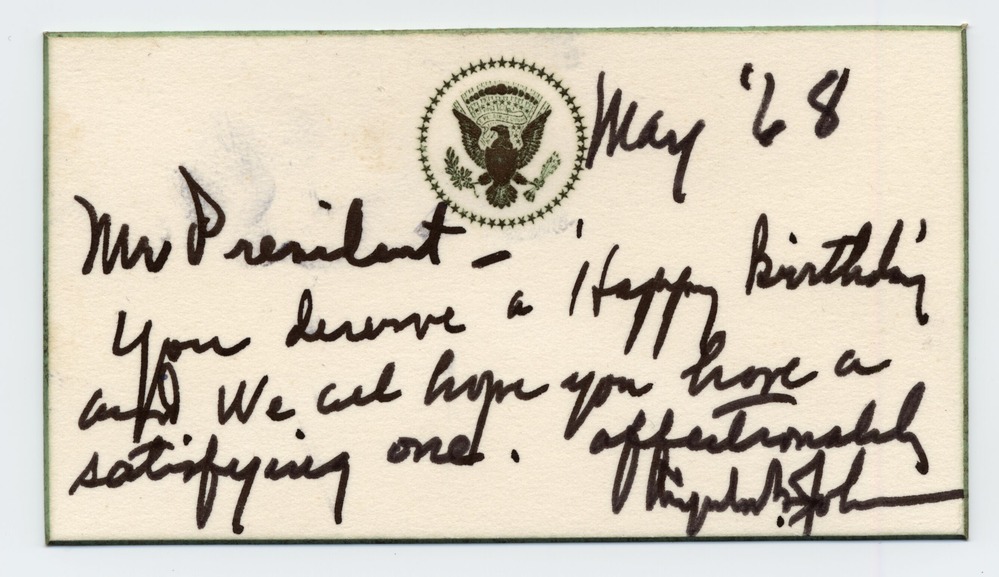 May '68
Mr President –
You deserve a 'Happy Birthday'
and We all hope you have a
satisfying one. affectionately
Lyndon B. Johnson